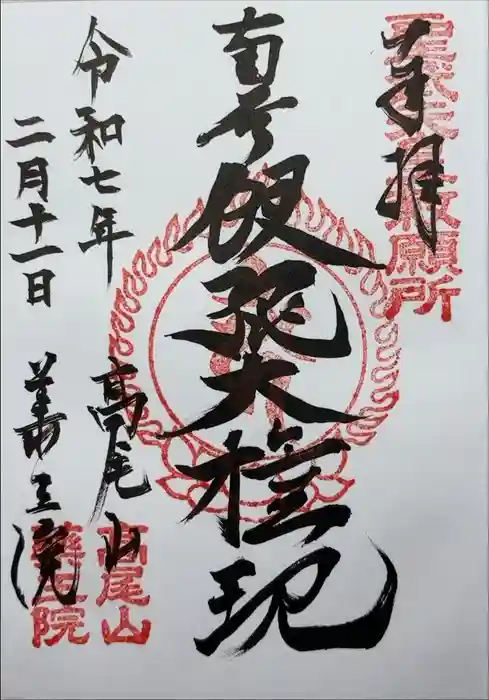 奉拝
聖武天皇勅願所
南無飯縄大権現
令和七年
二月十一日
高尾山
薬王院
高尾山
薬王院